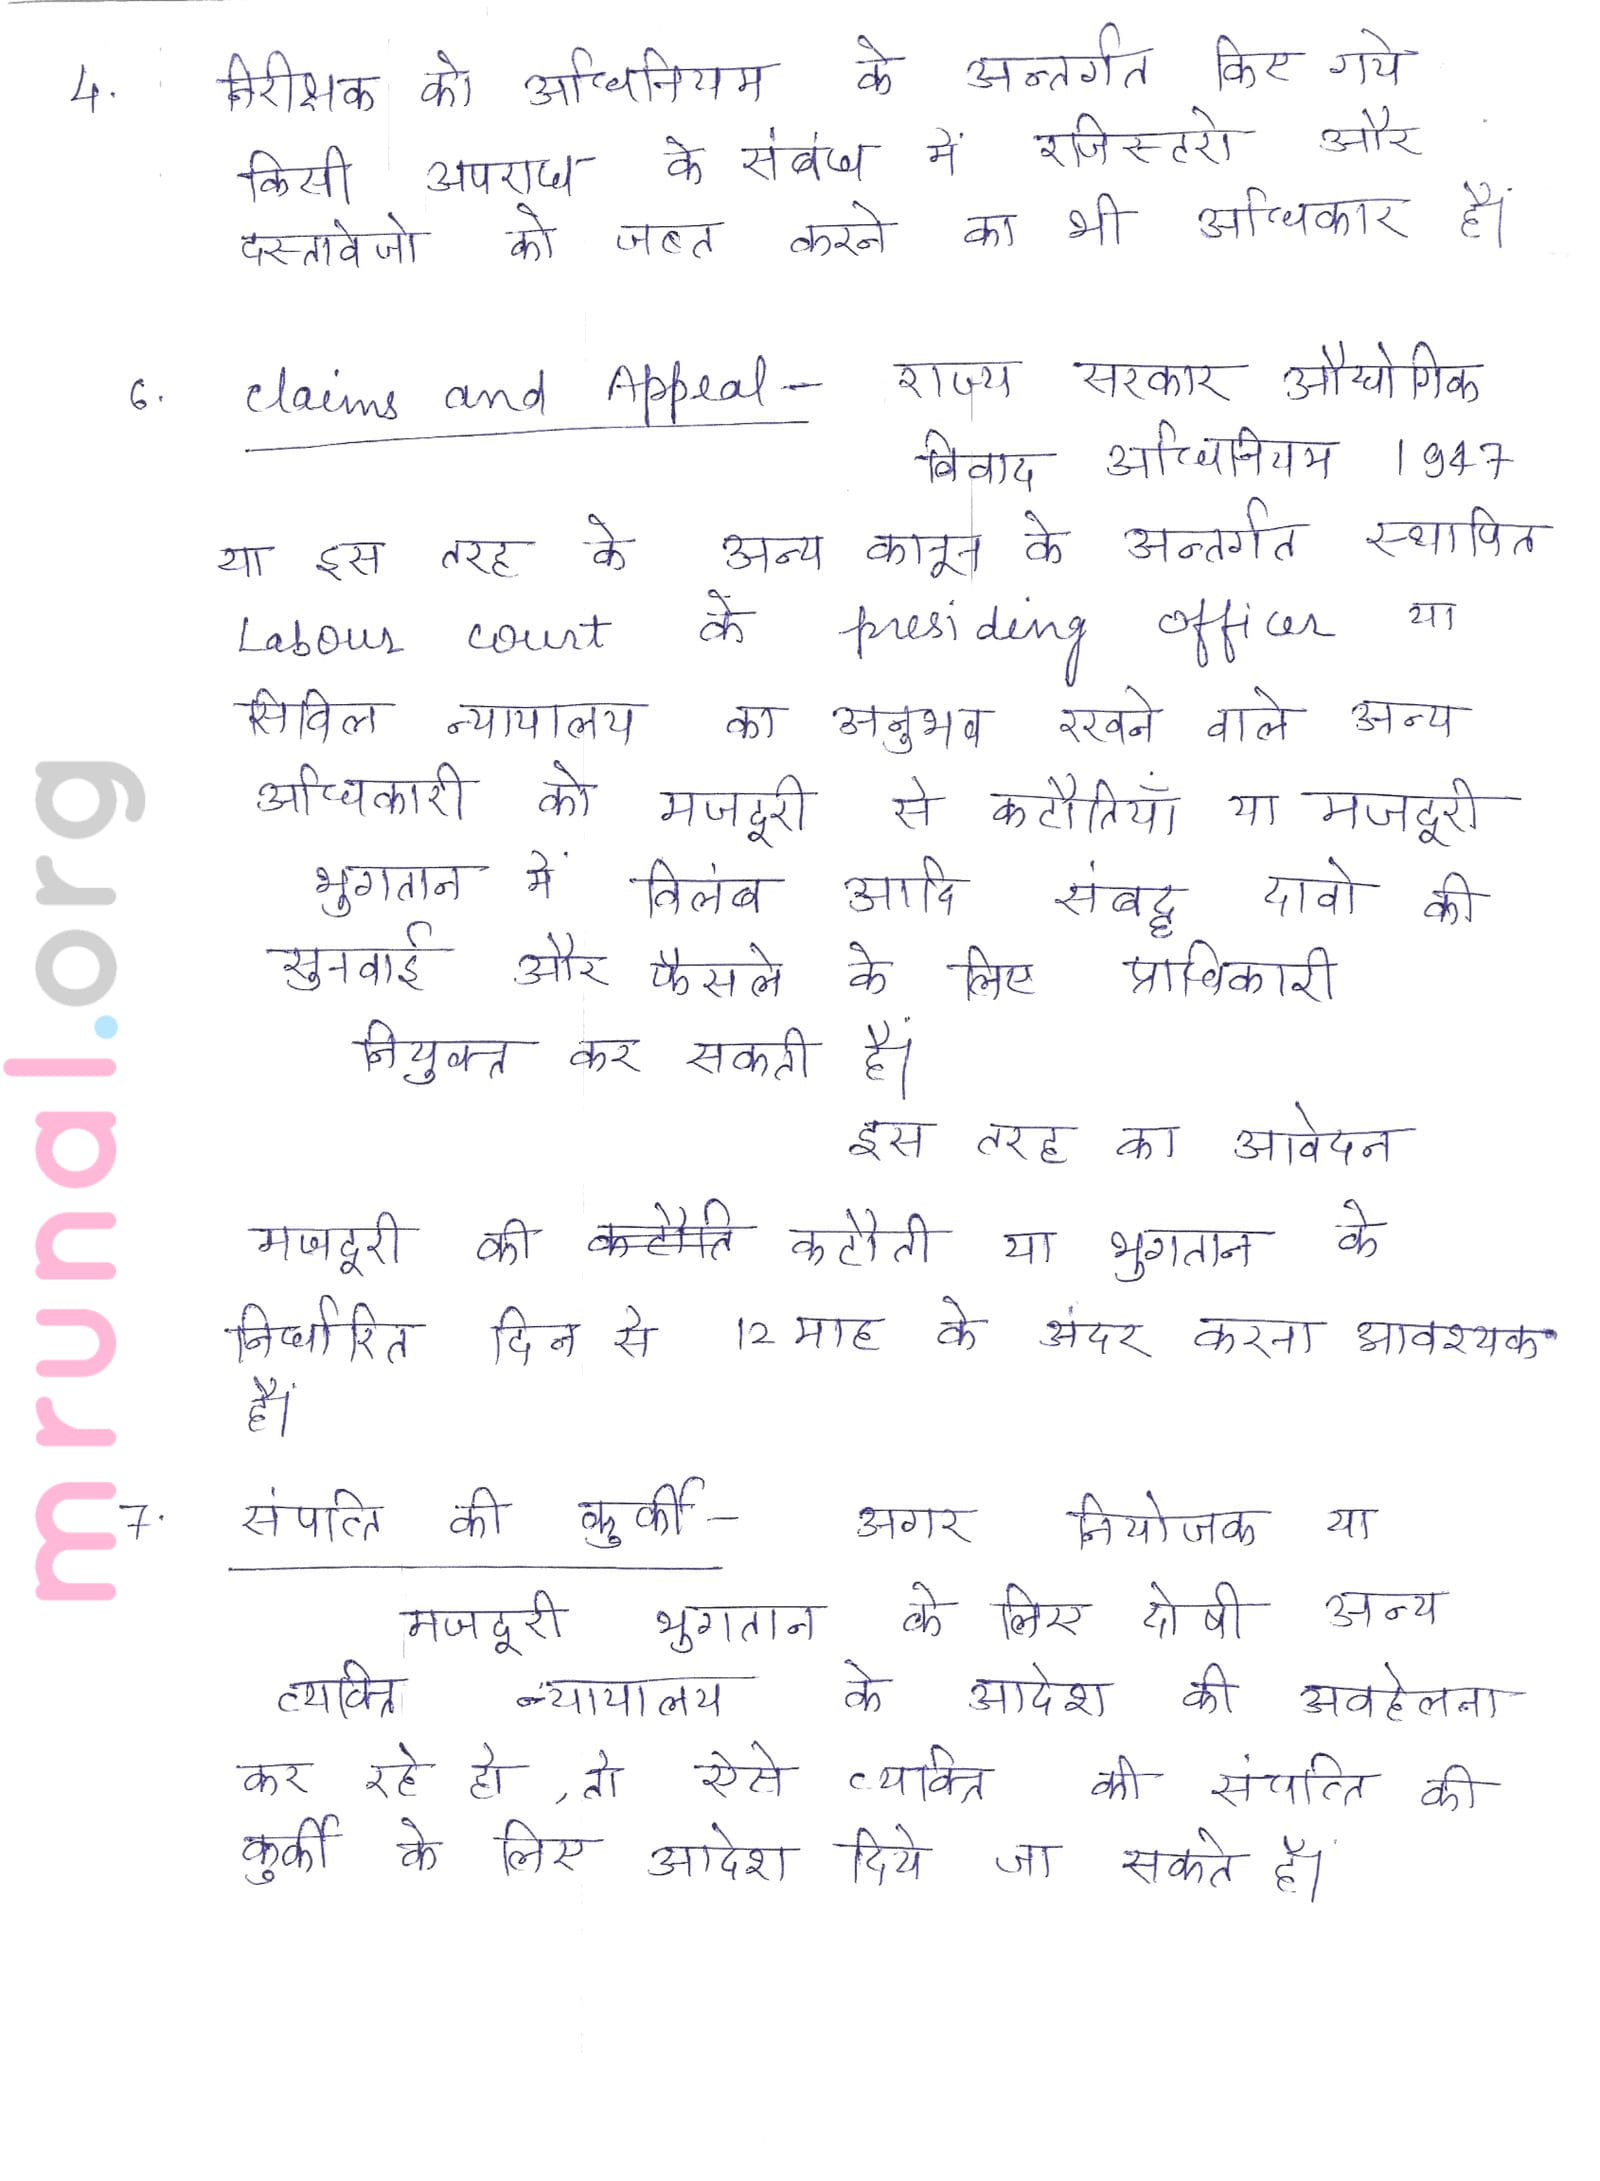 4. निरीक्षक को अधिनियम के अन्तर्गत किए गये
किसी अपराध के संबंध में रजिस्टरो और
दस्तावेजो को जब्त करने का भी अधिकार हैं।
6. claims and Appeal – राज्य सरकार औद्योगिक
विवाद अधिनियम 1947
या इस तरह के अन्य कानून के अन्तर्गत स्थापित
Labour court के presiding officer या
सिविल न्यायालय का अनुभव रखने वाले अन्य
अधिकारी को मजदूरी से कटौतियाँ या मजदूरी
भुगतान में विलंब आदि संबद्ध दावो की
सुनवाई और फैसले के लिए प्राधिकारी
नियुक्त कर सकती हैं।
इस तरह का आवेदन
मजदूरी की कटौति कटौती या भुगतान के
निर्धारित दिन से 12 माह के अंदर करना आवश्यक
हैं।
7. संपत्ति की कुर्की – अगर नियोजक या
मजदूरी भुगतान के लिए दोषी अन्य
व्यक्ति न्यायालय के आदेश की अवहेलना
कर रहे हो, तो ऐसे व्यक्ति की संपत्ति की
कुर्की के लिए आदेश दिये जा सकते हैं।
mrunal.org